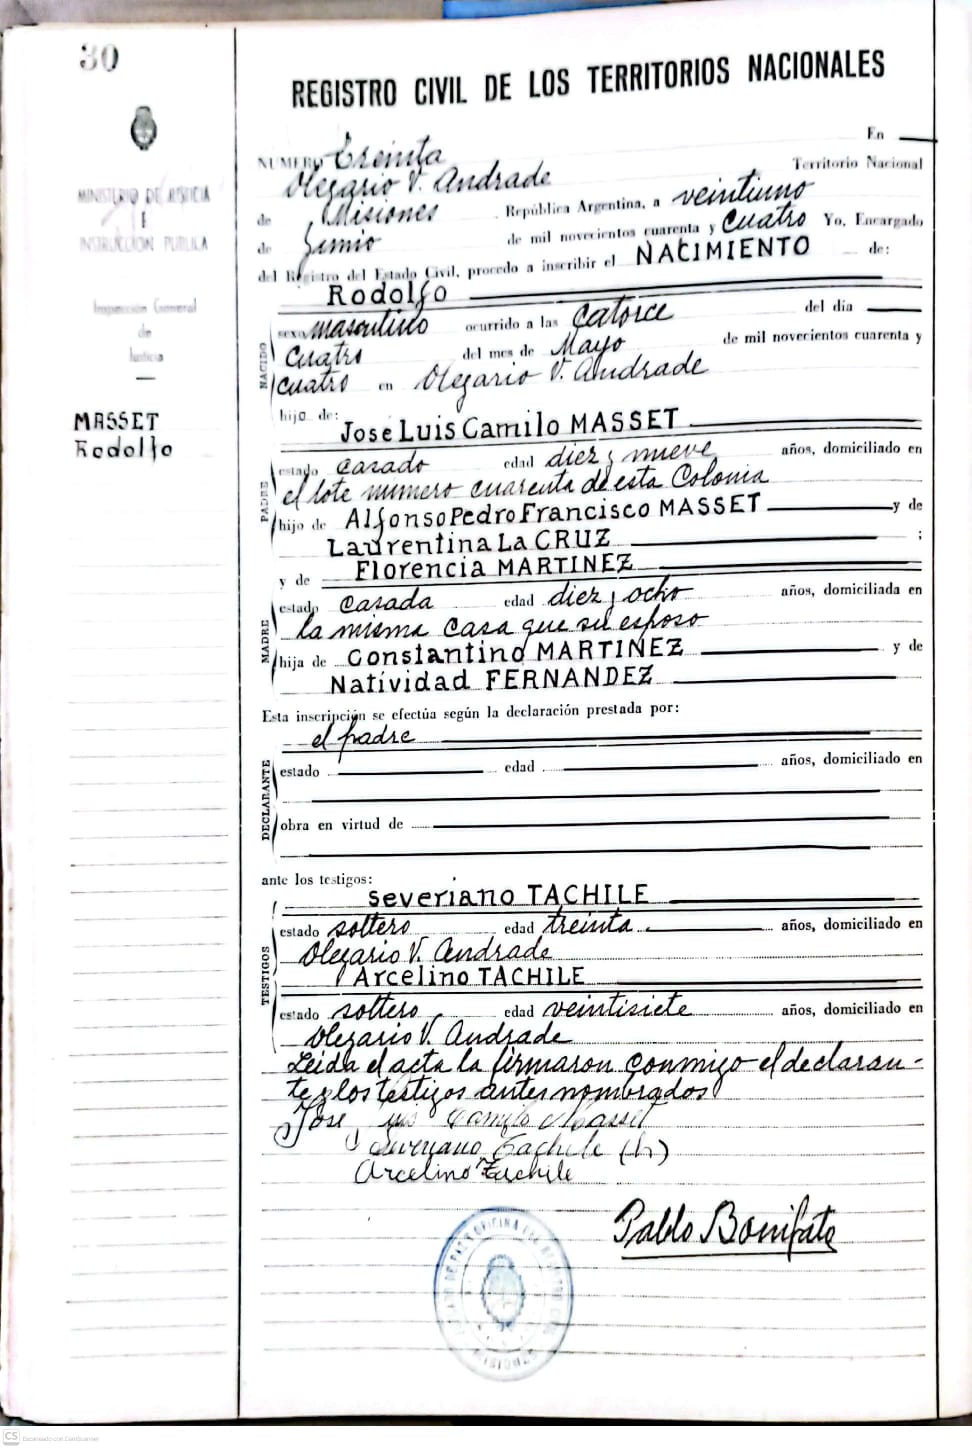 30
REGISTRO CIVIL DE LOS TERRITORIOS NACIONALES
MINISTERIO DE JUSTICIA
E
INSTRUCCION PUBLICA
Inspección General
de
Justicia
MASSET
Rodolfo
En
NUMERO Treinta
Territorio Nacional
Olegario V. Andrade
de Misiones República Argentina, a veintiuno
de Junio de mil novecientos cuarenta y Cuatro Yo, Encargado
del Registro del Estado Civil, procedo a inscribir el NACIMIENTO de:
Rodolfo
NACIDO
sexo masculino ocurrido a las Catorce del día
Cuatro del mes de Mayo de mil novecientos cuarenta y
Cuatro en Olegario V. Andrade
hijo de:
José Luis Camilo MASSET
PADRE
estado Casado edad diez y nueve años, domiciliado en
el lote numero cuarenta de esta Colonia
hijo de Alfonso Pedro Francisco MASSET y de
Laurentina La CRUZ ;
y de Florencia MARTINEZ
MADRE
estado Casada edad diez y ocho años, domiciliada en
la misma casa que su esposo
hija de Constantino MARTINEZ y de
Natividad FERNANDEZ
Esta inscripción se efectúa según la declaración prestada por:
el padre
DECLARANTE
estado edad años, domiciliado en
obra en virtud de
ante los testigos:
Severiano TACHILE
TESTIGOS
estado soltero edad treinta años, domiciliado en
Olegario V. Andrade
Arcelino TACHILE
estado soltero edad veintisiete años, domiciliado en
Olegario V. Andrade
Leida el acta la firmaron conmigo el declaran-
te y los testigos antes nombrados
José Luis Camilo Masset
Severiano Tachile (h)
Arcelino Tachile
Pablo Bonifato
CS Escaneado con CamScanner